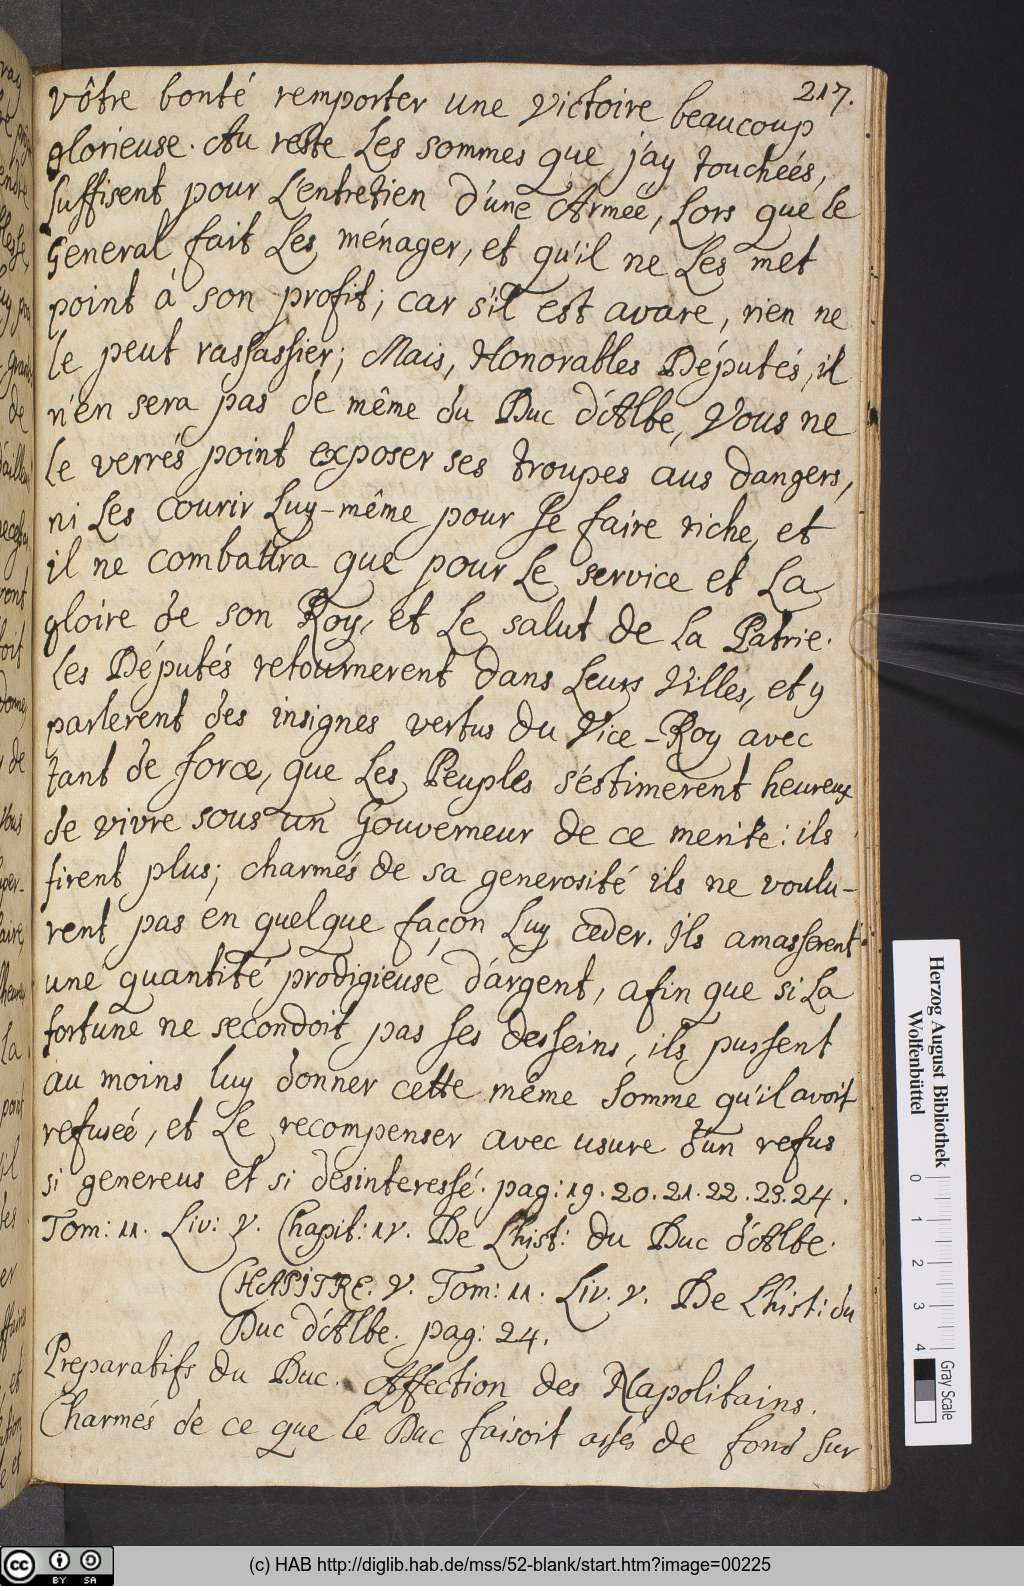 217.
vôtre bonté remporter une victoire beaucoup
glorieuse. Au reste Les sommes que j'ay toucheés,
suffisent pour L'entretien d'une Armeé, Lors que le
General fait Les ménager, et qu'il ne Les met
point à son profit; car s'il est avare, rien ne
le peut rassassier; Mais, Honorables Députés, il
n'en sera pas de même du Duc d'Albe, Vous ne
le verrés point exposer ses troupes aus dangers,
ni Les courir Luy-même pour se faire riche, et
il ne combattra que pour Le service et La
gloire de son Roy, et Le salut de La Patrie.
Les Députés retournerent dans Leurs Villes, et y
parlerent des insignes vertus du Vice-Roy avec
tant de force, que Les Peuples s'éstimerent heureux
de vivre sous un Gouverneur de ce merite: ils
firent plus; charmés de sa generosité ils ne voulu-
rent pas en quelque façon Luy ceder. Ils amasserent
une quantité prodigieuse d'argent, afin que si La
fortune ne secondoit pas ses desseins, ils pussent
au moins luy donner cette même somme qu'il avoit
refuseé, et Le recompenser avec usure d'un refus
si genereus et si desinteressé. pag: 19. 20. 21. 22. 23. 24.
Tom: 11. Liv: V. Chapit: 1V. De L'hist: du Duc d'Albe.
CHAPITRE. V. Tom: 11. Liv. V. De L'hist: du
Duc d'Albe. pag: 24.
Preparatifs du Duc. Affection des Napolitains.
Charmés de ce que le Duc faisoit assés de fond sur
Herzog August Bibliothek
Wolfenbüttel
0 1 2 3 4
Gray Scale
cc BY SA
(c) HAB http://diglib.hab.de/mss/52-blank/start.htm?image=00225